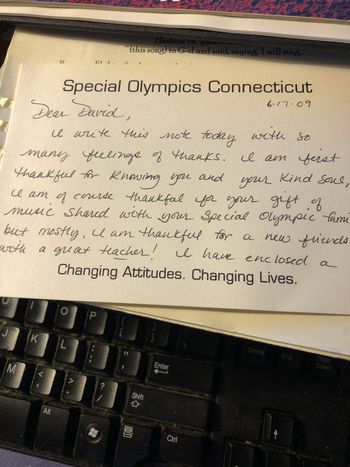 "(this song) to G-d and said, saying, I will sing...
Special Olympics Connecticut
6-17-09
Dear David,
I write this note today with so
many feelings of thanks. I am first
thankful for knowing you and your Kind Soul,
I am of course thankful for your gift of
music shared with your Special Olympic fami
but mostly, I am thankful for a new friends
with a great teacher! I have enclosed a
Changing Attitudes. Changing Lives.
U I O P
J K L
Enter
M
Shift
Alt
Ctrl
Delete End Page Down